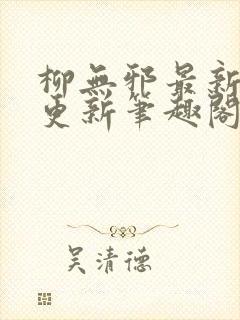 柳無邪最新
更新筆趣閣
吴清德